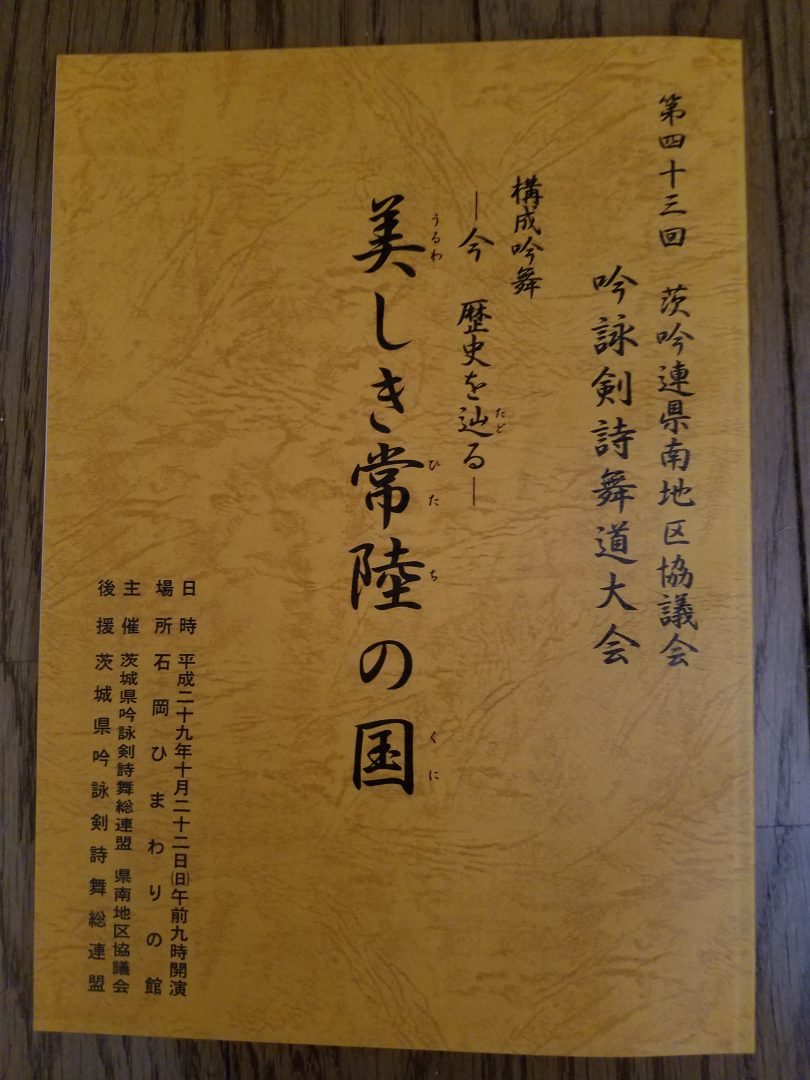 第四十三回 茨吟連県南地区協議会
吟詠剣詩舞道大会
構成吟舞
―今 歴史を辿る―
たど
美しき常陸の国
うるわ ひたち くに
日時 平成二十九年十月二十二日(日)午前九時開演
場所 石岡ひまわりの館
主催 茨城県吟詠剣詩舞総連盟 県南地区協議会
後援 茨城県吟詠剣詩舞総連盟